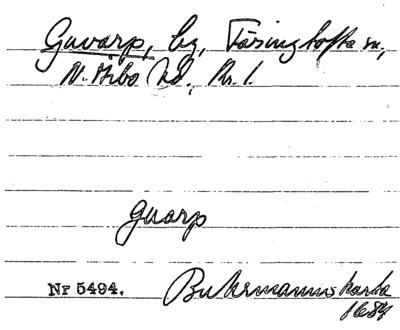 Guvarp, by, Färingtofta sn,
N. Åsbo hd., Kr. l.
guarp
Nr 5494. Buhrmanns karta
1684